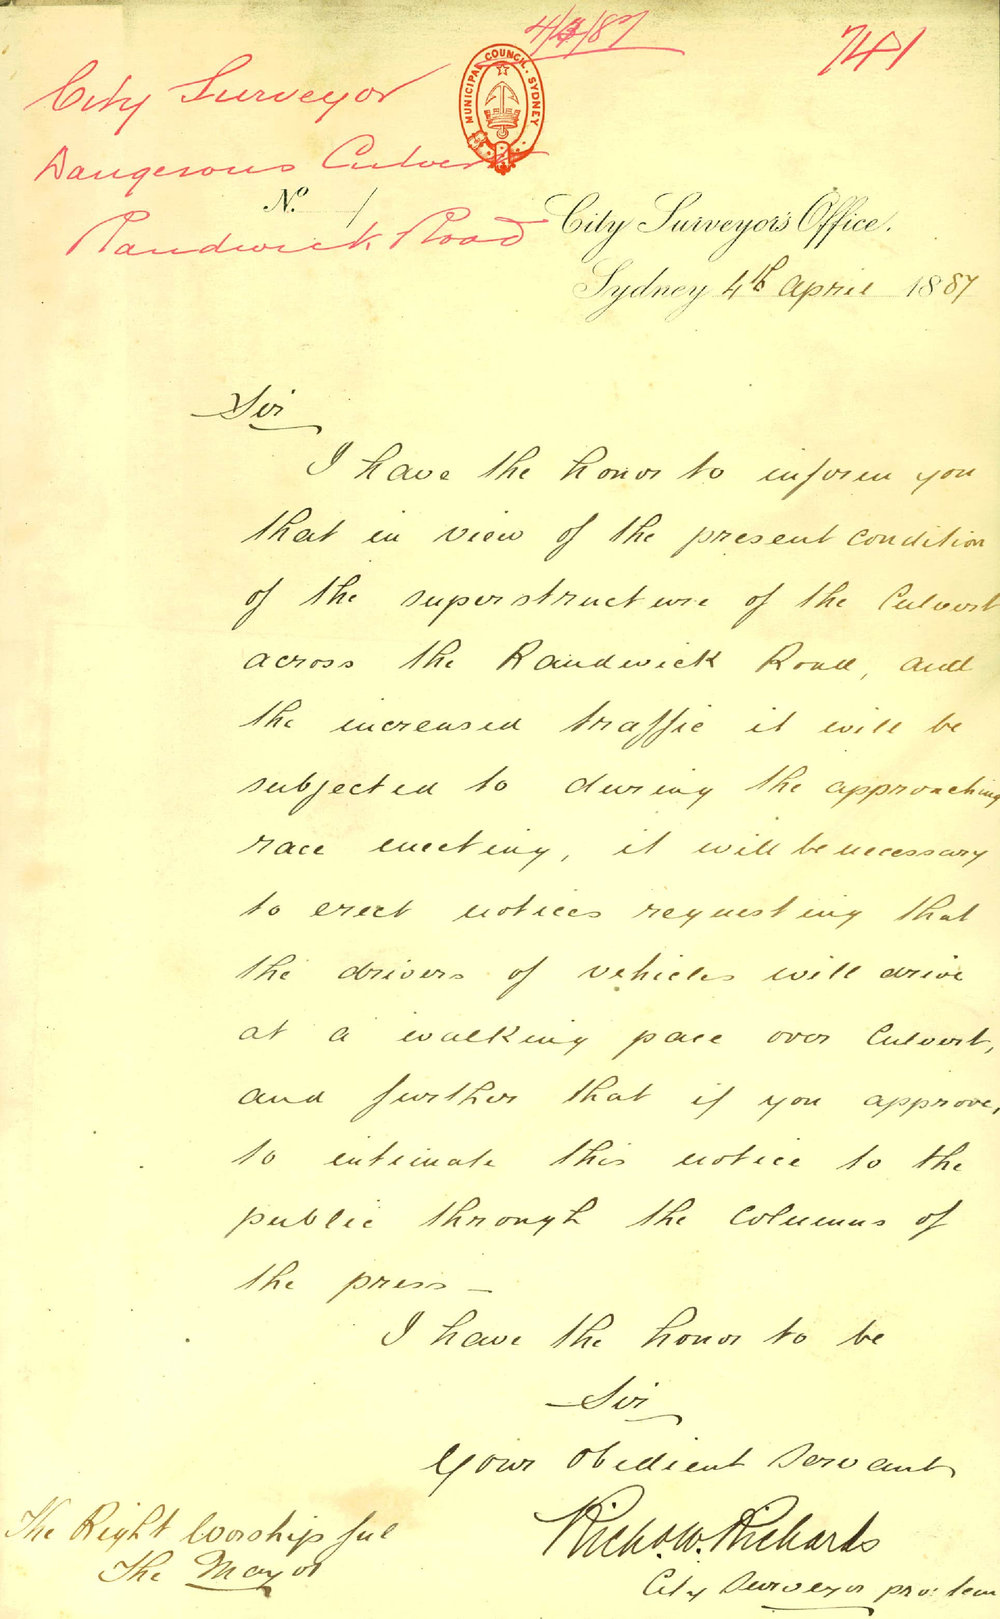 4/4/87
741
City Surveyor
Dangerous Culvert
Randwick Road
MUNICIPAL COUNCIL. SYDNEY
No. /
City Surveyor's Office.
Sydney 4th April 1887
Sir
I have the honor to inform you
that in view of the present condition
of the superstructure of the Culvert
across the Randwick Road, and
the increased traffic it will be
subjected to during the approaching
race meeting, it will be necessary
to erect notices requesting that
the drivers of vehicles will drive
at a walking pace over Culvert,
and further that if you approve,
to intimate this notice to the
public through the columns of
the press_
I have the honor to be
Sir
Your Obedient Servant
Richd. W. Richards
City Surveyor pro: tem
The Right Worshipful
The Mayor